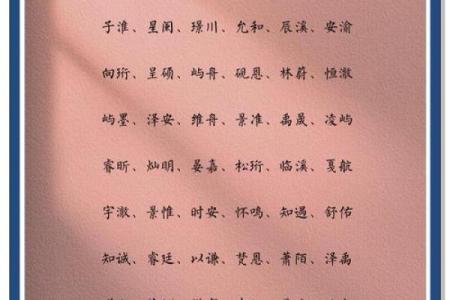 子淮、星阑、璟川、允和、辰溪、安渝
向珩、呈硕、屿舟、砚恩、林蔚、恒澈
屿墨、泽安、维舟、景淮、禹晟、凌屿
睿昕、灿明、晏嘉、松珩、临溪、戛航
宇澈、景惟、时安、怀鸣、知遇、舒佑
知诚、睿廷、以谦、梵恩、萧陌、泽禹